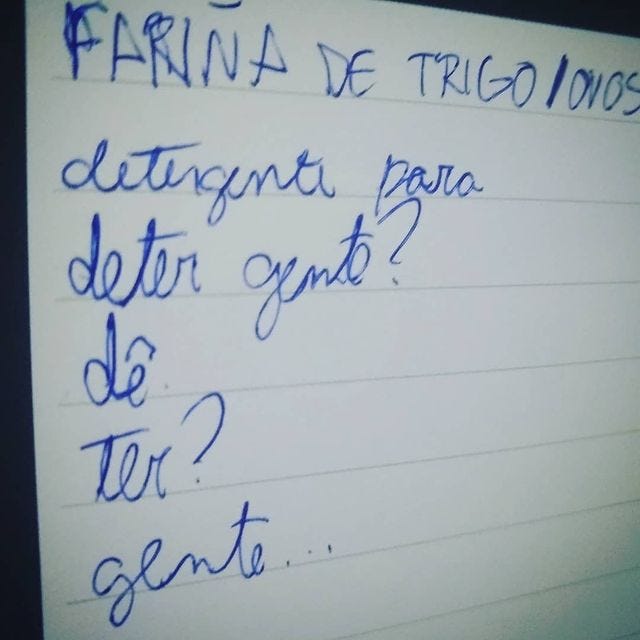 FARIÑA DE TRIGO/OVOS
detergente para
deter gente?
dê
ter?
gente...